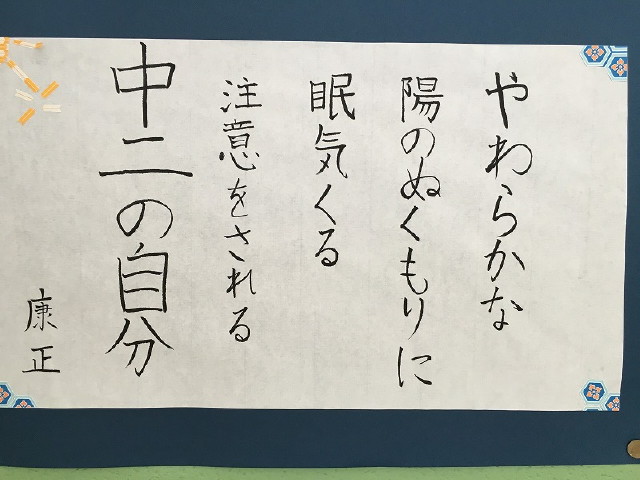 やわらかな
陽のぬくもりに
眠気くる
注意をされる
中二の自分
康正